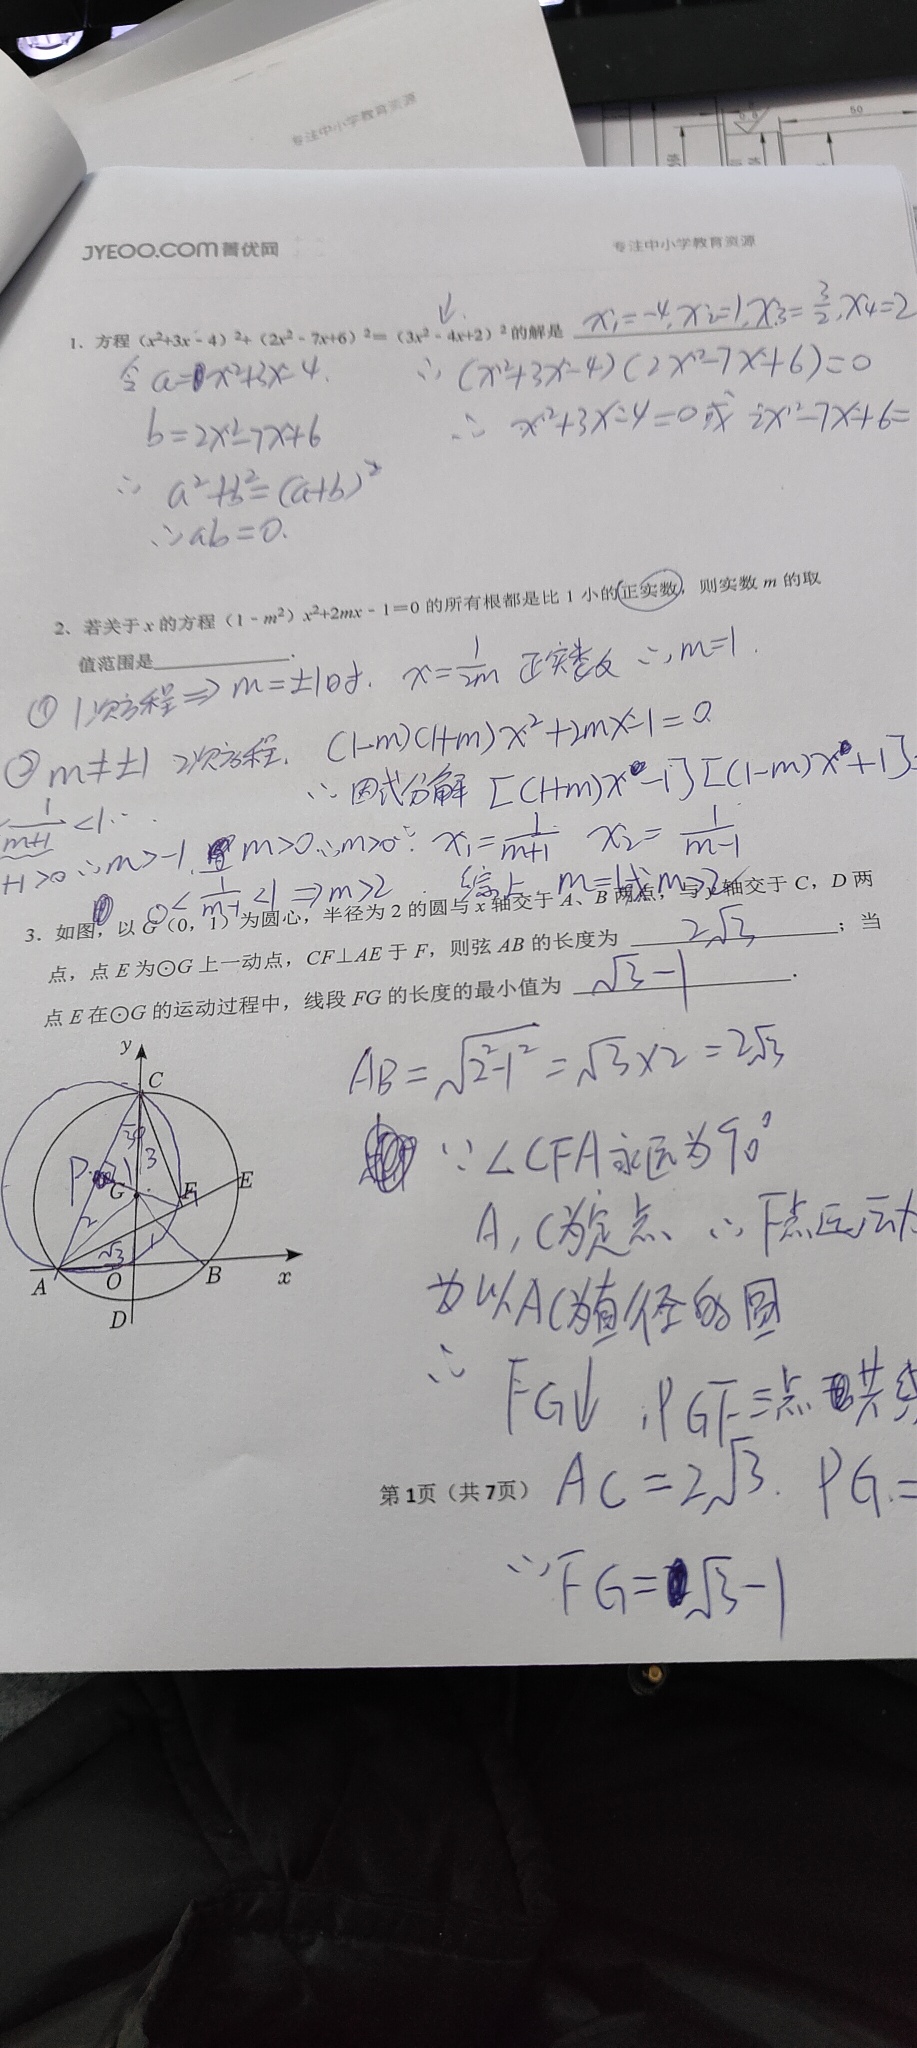 专注中小学教育资源
50
JYEOO.COM菁优网
专注中小学教育资源
1、方程（x²+3x-4）²+（2x²-7x+6）²=（3x²-4x+2）²的解是 x₁=-4,x₂=1,x₃=3/2,x₄=2
令a=x²+3x-4.
∴(x²+3x-4)(2x²-7x+6)=0
b=2x²-7x+6
∴x²+3x-4=0或2x²-7x+6=
∴a²+b²=(a+b)²
∴ab=0.
2、若关于x的方程（1-m²）x²+2mx-1=0的所有根都是比1小的正实数，则实数m的取
值范围是 .
① 1次方程⇒m=±1时. x=1/2m 正实数 ∴m=1.
② m≠±1 2次方程. (1-m)(1+m)x²+2mx-1=0
∴因式分解 [(1+m)x-1][(1-m)x+1]=
1/m+1 <1∴
+1>0∴m>-1. m>0∴m>0∴ x₁=1/m+1 x₂=1/m-1
0<1/m-1<1⇒m>2 综上 m=1或m>2
3．如图，以G（0，1）为圆心，半径为2的圆与x轴交于A、B两点，与y轴交于C，D两
点，点E为⊙G上一动点，CF⊥AE于F，则弦AB的长度为 2√3 ；当
点E在⊙G的运动过程中，线段FG的长度的最小值为 √3-1 .
AB=√2²-1²=√3×2=2√3
∵∠CFA永远为90°
A,C为定点 ∴F点运动
为以AC为直径的圆
∴FG↓,PGF三点共线
AC=2√3. PG=
∴FG=√3-1
y
C
3
P
1
G
F
E
2
√3
1
A
O
B
x
D
第1页（共7页）